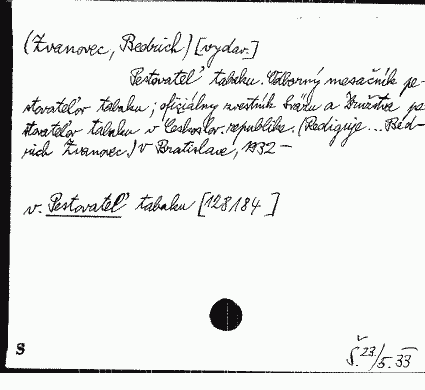 (Zvanovec, Bedrich) [vydav.]
Pestovateľ tabaku. Odborný mesačník pe-
stovateľov tabaku; oficiálny vestník Sväzu a Družstva pe-
stovateľov tabaku v Českoslov. republike. (Rediguje... Bed-
rich Zvanovec.) V Bratislave, 1932 —
v. Pestovateľ tabaku [128184]
S
Š. 23/5. 33